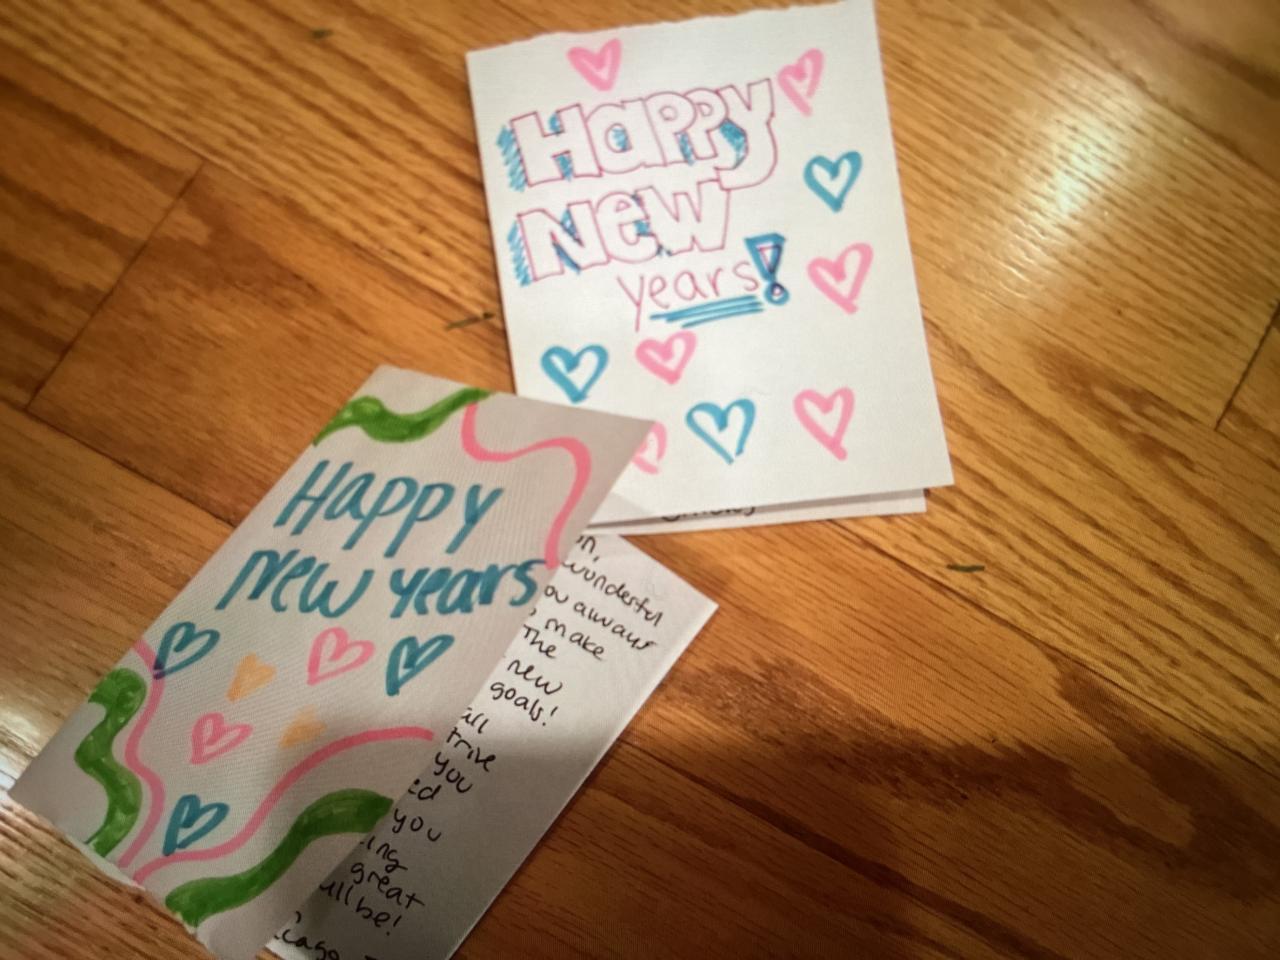 Happy
New
years!
Happy
New years
wonderful
always
make
The
new
goals!
you
you
great
be!